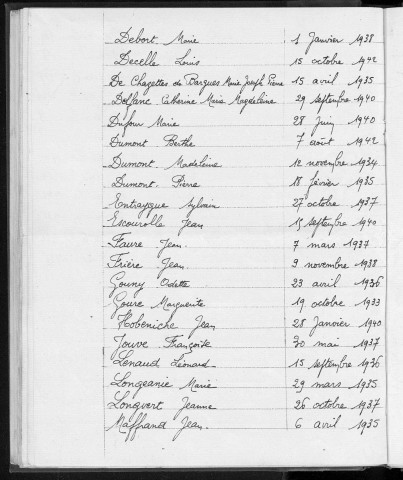 Debort Marie 1 Janvier 1938
Decelle Louis 15 octobre 1942
De Chazettes de Bargues Marie Joseph Pierre 15 avril 1935
Delfanc Catherine Marie Magdeleine 29 septembre 1940
Dufour Marie 28 juin 1940
Dumont Berthe 7 août 1942
Dumont Madeleine 12 novembre 1934
Dumont Pierre 18 février 1935
Entraygue Sylvain 27 octobre 1937
Escourolle Jean 15 septembre 1940
Faure Jean 7 mars 1937
Frière Jean 9 novembre 1938
Gouny Odette 23 avril 1936
Goure Marguerite 19 octobre 1933
Hobeniche Jean 28 Janvier 1940
Jouve Françoise 30 mai 1937
Lenaud Léonard 15 septembre 1936
Longeanie Marie 29 mars 1935
Longvert Jeanne 26 octobre 1937
Maffrand Jean 6 avril 1935